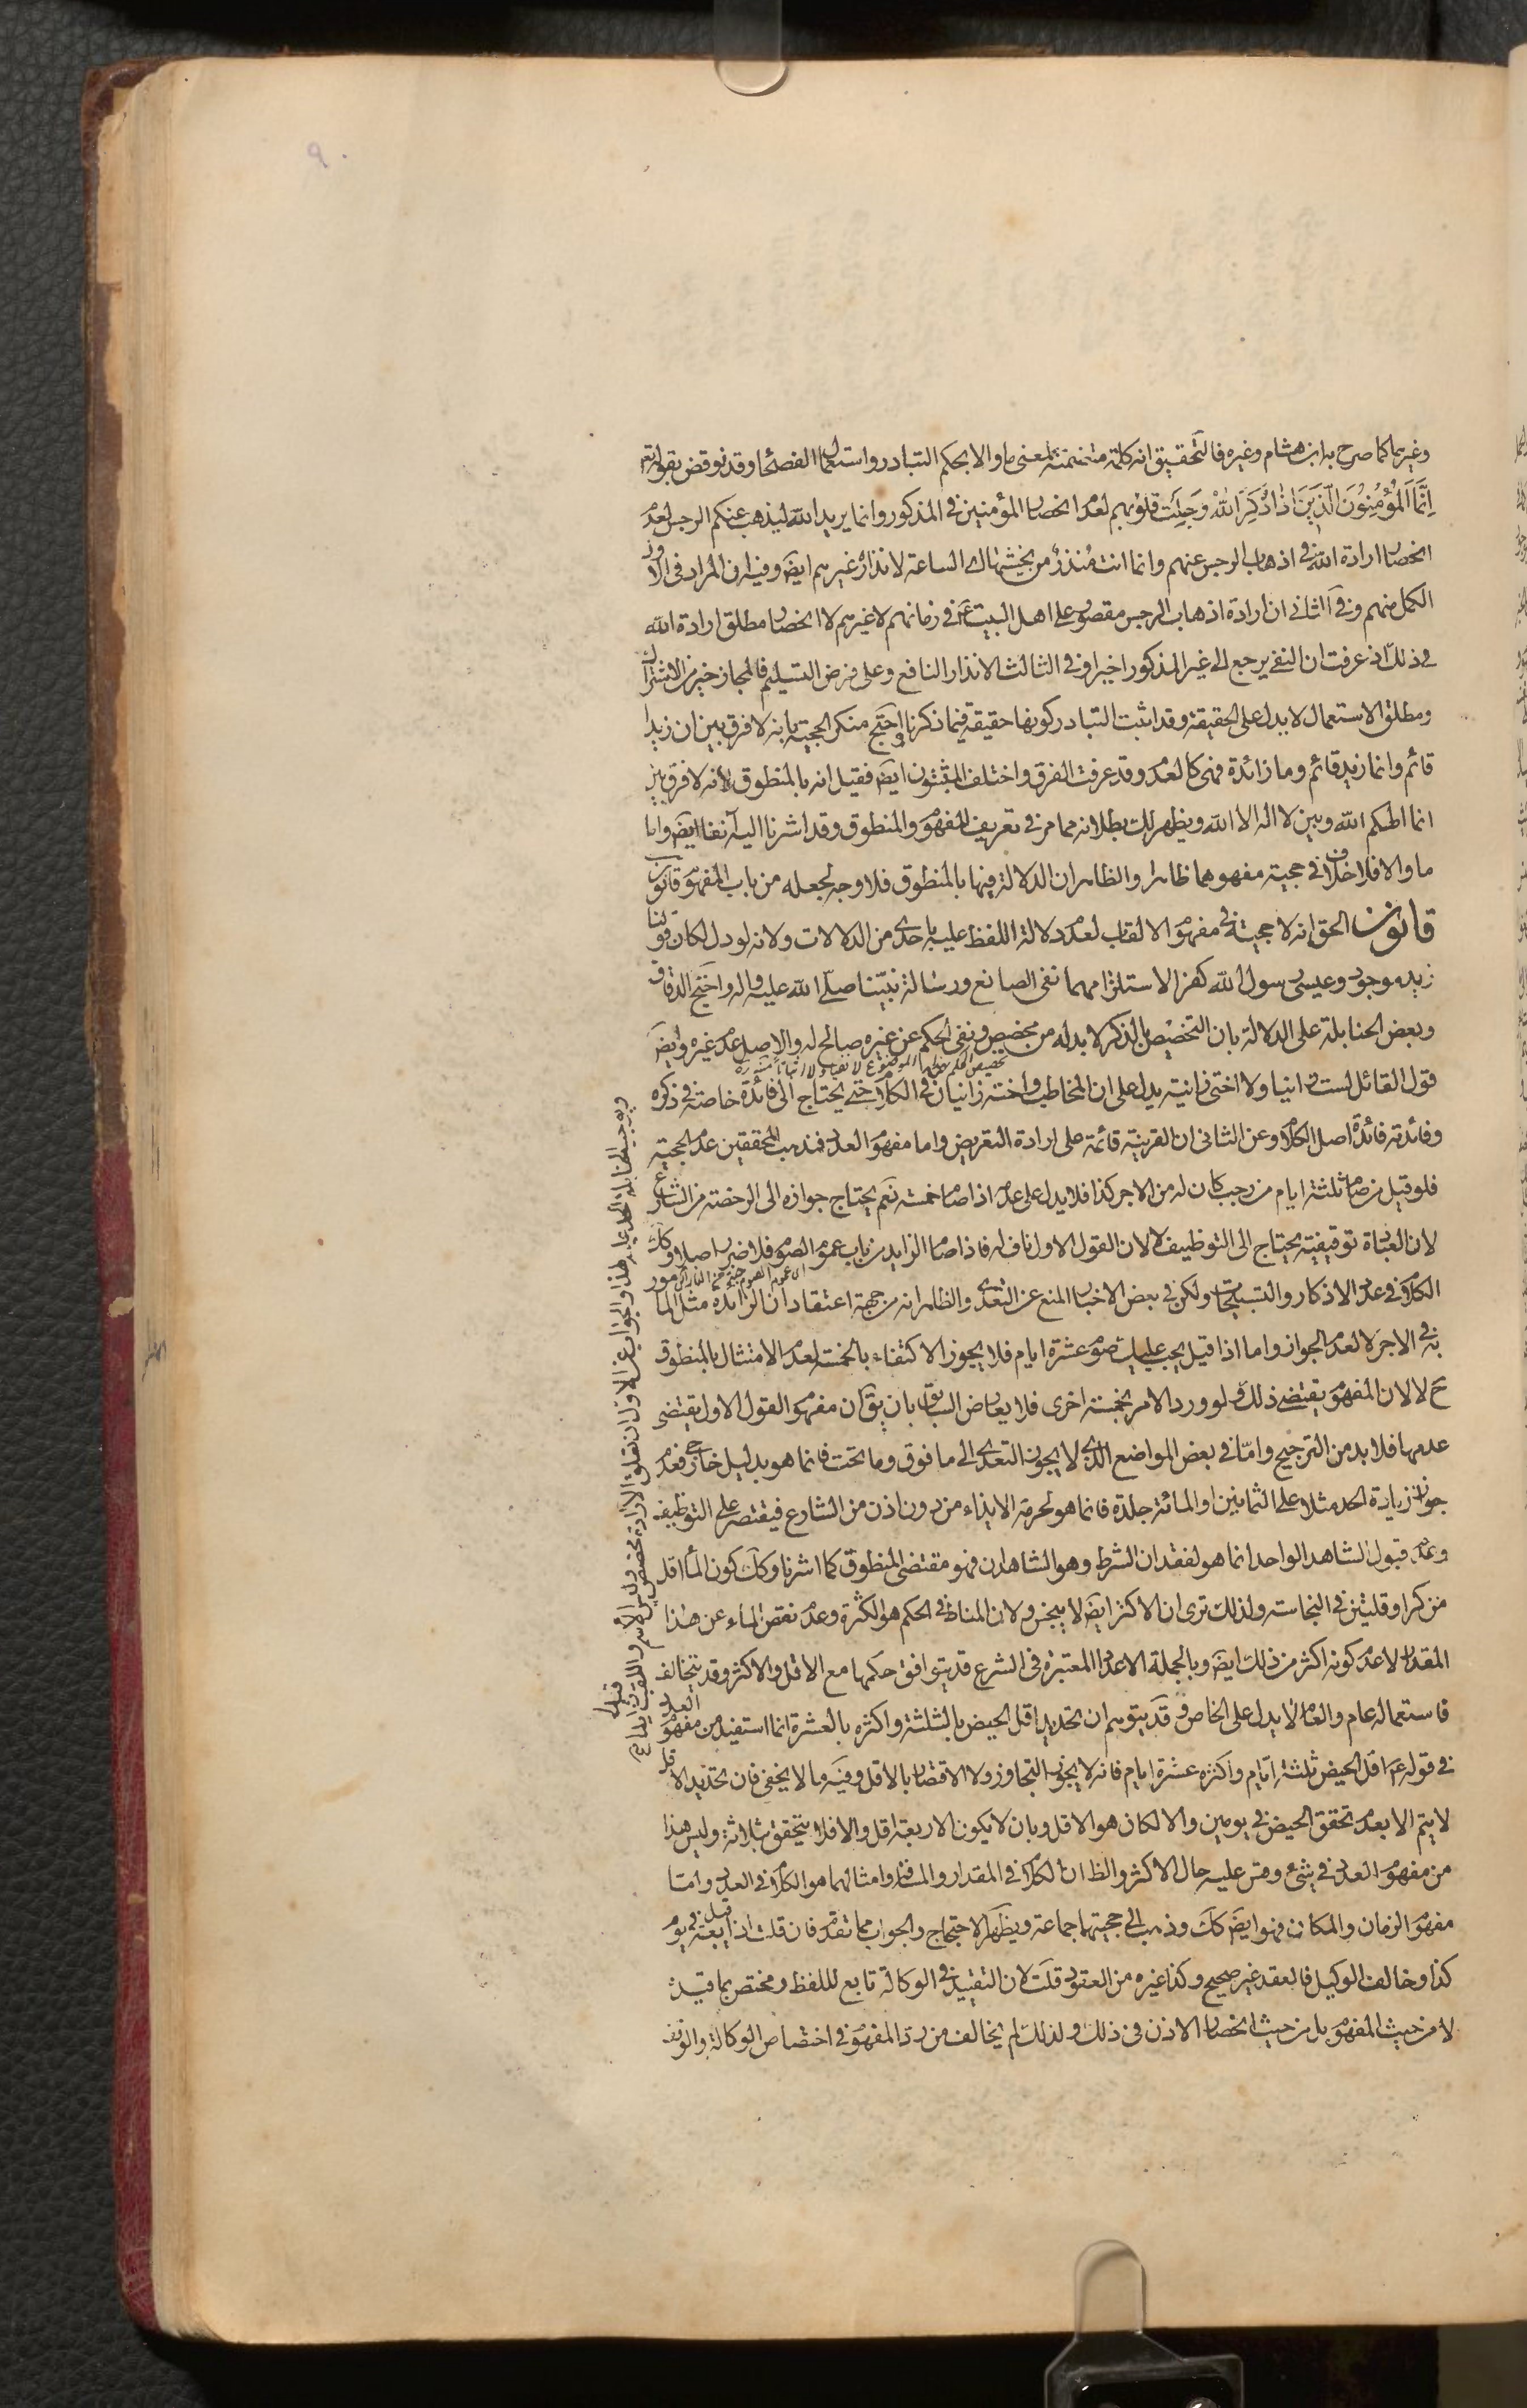 وغيرها كما صرح به ابن هشام وغيره فالتحقيق انه كلمة متضمنة لمعنى ما والا بحكم التبادر واستعمال الفصحا وقد نوقض بقوله تع
اِنَّمَا الْمُؤْمِنُونَ الَّذِينَ اِذَا ذُكِرَ اللّٰهُ وَجِلَتْ قلوبهم لعدم انحصار المؤمنين في المذكور وانما يريد الله ليذهب عنكم الرجس لعدم
انحصار ارادة الله في اذهاب الرجس عنهم وانما انت مُنذرُ من يخشيها الساعة لانذار غيرهم ايض وفيه ان المراد في الاول
الكمل منهم وفي الثاني ان ارادة اذهاب الرجس مقصور على اهل البيت ع في زمانهم لا غيرهم لا انحصار مطلق ارادة الله
في ذلك اذ عرفت ان النفي يرجع الى غير المذكور اخيرا وفي الثالث الانذار النافع وعلى فرض التسليم فالمجاز خير من الاشتراك
ومطلق الاستعمال لا يدل على الحقيقة وقد اثبت التبادر كونها حقيقة فيما ذكرنا واحتج منكر الحجية بانه لا فرق بين ان زيدا
قائم وانما زيد قائم وما زائدة فهي كالعدم وقد عرفت الفرق واختلف المثبتون ايض فقيل انه بالمنطوق لأنه لا فرق بين
انما الهكم الله وبين لا اله الا الله ويظهر لك بطلانه مما مر في تعريف المفهوم والمنطوق وقد اشرنا اليه آنفا ايض واما
ما والا فلا خلاف في حجية مفهومهما ظاهرا والظاهر ان الدلالة فيها بالمنطوق فلا وجه لجعله من باب المفهوم قانون
قانون الحق انه لا حجية في مفهوم الالقاب لعدم دلالة اللفظ عليه باحدى من الدلالات ولانه لو دل لكان قولنا
زيد موجود وعيسى رسول الله كفرا لاستلزامهما نفي الصانع ورسالة نبيّنا صلّى الله عليه واله واحتج الدقاق
وبعض الحنابلة على الدلالة بان التخصيص بالذكر لا بد له من مخصص ونفي الحكم عن غيره صالح له والاصل عدم غيره وايض
قول القائل لست زانيا ولا اختي زانية يدل على ان المخاطب واخته زانيان في الكلام حتى يحتاج الى فائدة خاصة في ذكره
وفائدته فائدة اصل الكلام وعن الثاني ان القرينة قائمة على ارادة التعريض واما مفهوم العدد فمذهب المحققين عدم الحجية
فلو قيل من صام ثلثة ايام من رجب كان له من الاجر كذا فلا يدل على عدمه اذا صام خمسة نعم يحتاج جوازه الى الرخصة من الشارع
لان العبادة توقيفية يحتاج الى التوظيف لا لان القول الاول ناف له فاذا صام الزايد من باب عموم الصوم فلا ضير اصلا وكك
الكلام في عدد الاذكار والتسبيحات ولكن في بعض الاخبار المنع عن التعدي والظاهر انه من جهة اعتقاد ان الزائدة مثل المامور
به في الاجر لا لعدم الجواز واما اذا قيل يجب عليك صوم عشرة ايام فلا يجوز الاكتفاء بالخمسة لعدم الامتثال بالمنطوق
ح لا لان المفهوم يقتضي ذلك ولو ورد الامر بخمسة اخرى فلا يعارض السابق بان يق ان مفهوم القول الاول يقتضي
عدمها فلا بد من الترجيح وامّا في بعض المواضع الذي لا يجوز التعدي الى ما فوق وما تحت فانما هو بدليل خارج فعدم
جواز زيادة الحد مثلا على الثمانين او المائة جلدة فانما هو لحرمة الايذاء من دون اذن من الشارع فيقتصر على التوظيف
وعدم قبول الشاهد الواحد انما هو لفقدان الشرط وهو الشاهدان فهو مقتضى المنطوق كما اشرنا وكك كون الماء اقل
من كر او قلتين في النجاسة ولذلك ترى ان الاكثر ايض لا ينجس ولان المناط في الحكم هو الكثرة وعدم نقص الماء عن هذا
المقدار لا عدم كونه اكثر من ذلك ايض وبالجملة الاعداد المعتبرة في الشرع قد يتوافق حكمها مع الاقل والاكثر وقد يتخالف
فاستعماله عام والعام لا يدل على الخاص وقد يتوهم ان تحديد اقل الحيض بالثلثة واكثره بالعشرة انما استفيد من مفهوم العدد
في قوله ع اقل الحيض ثلثة ايّام واكثره عشرة ايام فانه لا يجوز التجاوز ولا الاقتصار بالاقل وفيه ما لا يخفى فان تحديد الاقل
لا يتم الا بعدم تحقق الحيض في يومين والا لكان هو الاقل وبان لا يكون الاربعة اقل والا فلا يتحقق بثلاثة وليس هذا
من مفهوم العدد في شئ وقس عليه حال الاكثر والظ ان الكلام في المقدار والمسافة وامثالهما هو الكلام في العدد وامّا
مفهوم الزمان والمكان فهو ايض كك وذهب الى حجيتهما جماعة ويظهر الاحتجاج والجواب مما تقدم فان قلت اذا قيل بعه في يوم
كذا وخالف الوكيل فالعقد غير صحيح وكذا غيره من العقود قلت لان التقييد في الوكالة تابع لللفظ ومختص بما قيد
لا من حيث المفهوم بل من حيث انحصار الاذن في ذلك ولذلك لم يخالف من رد المفهوم في اختصاص الوكالة والوقف